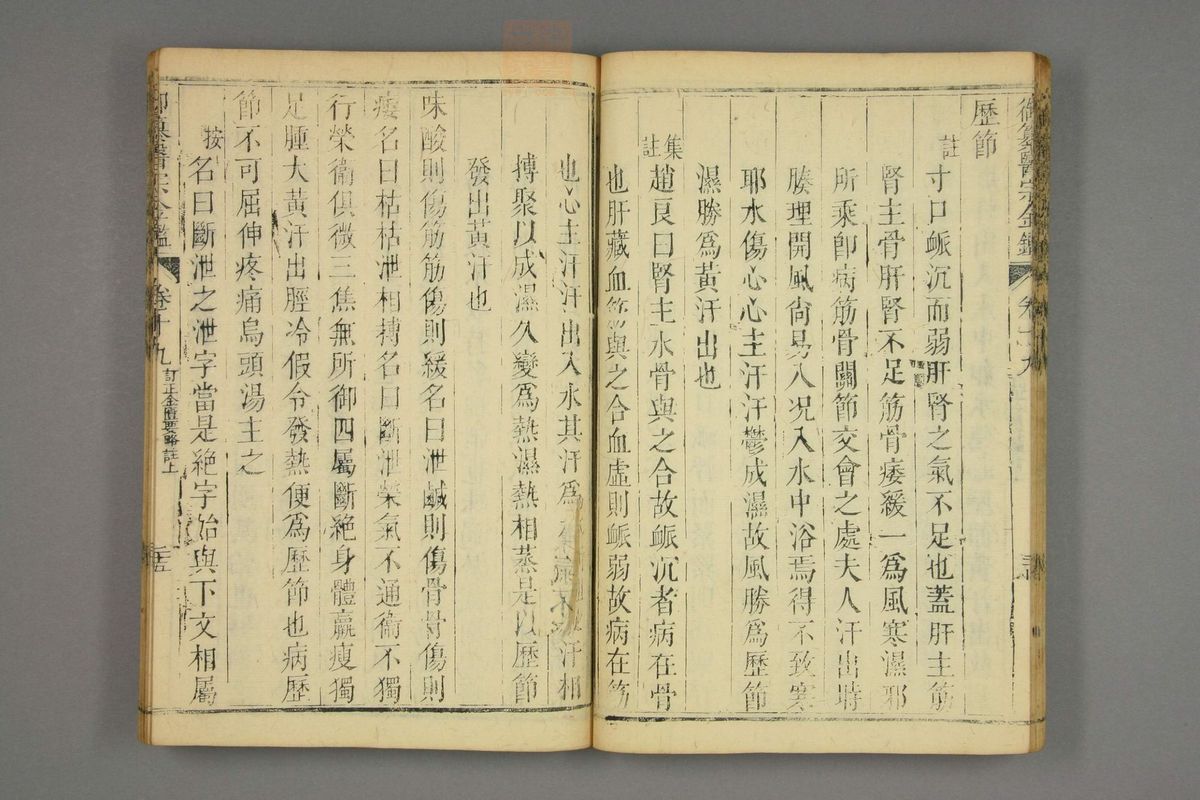 御纂醫宗金鑑 卷十九
歷節
註 寸口脈沉而弱肝腎之氣不足也蓋肝主筋
腎主骨肝腎不足筋骨痿緩一爲風寒濕邪
所乘卽病筋骨關節交會之處夫人汗出時
腠理開風尙易入况入水中浴焉得不致寒
耶水傷心心主汗汗鬱成濕故風勝爲歷節
濕勝爲黃汗出也
集註 趙良曰腎主水骨與之合故脈沉者病在骨
也肝藏血筋與之合血虛則脈弱故病在筋
也心主汗汗出入水其汗爲
汗相
搏聚以成濕久變爲熱濕熱相蒸是以歷節
發出黃汗也
味酸則傷筋筋傷則緩名曰泄鹹則傷骨骨傷則
痿名曰枯枯泄相搏名曰斷泄榮氣不通衞不獨
行榮衞俱微三焦無所御四屬斷絕身體羸瘦獨
足腫大黃汗出脛冷假令發熱便爲歷節也病歷
節不可屈伸疼痛烏頭湯主之
按 名曰斷泄之泄字當是絕字始與下文相屬
御纂醫宗金鑑 卷十九 訂正金匱要略註上 二五